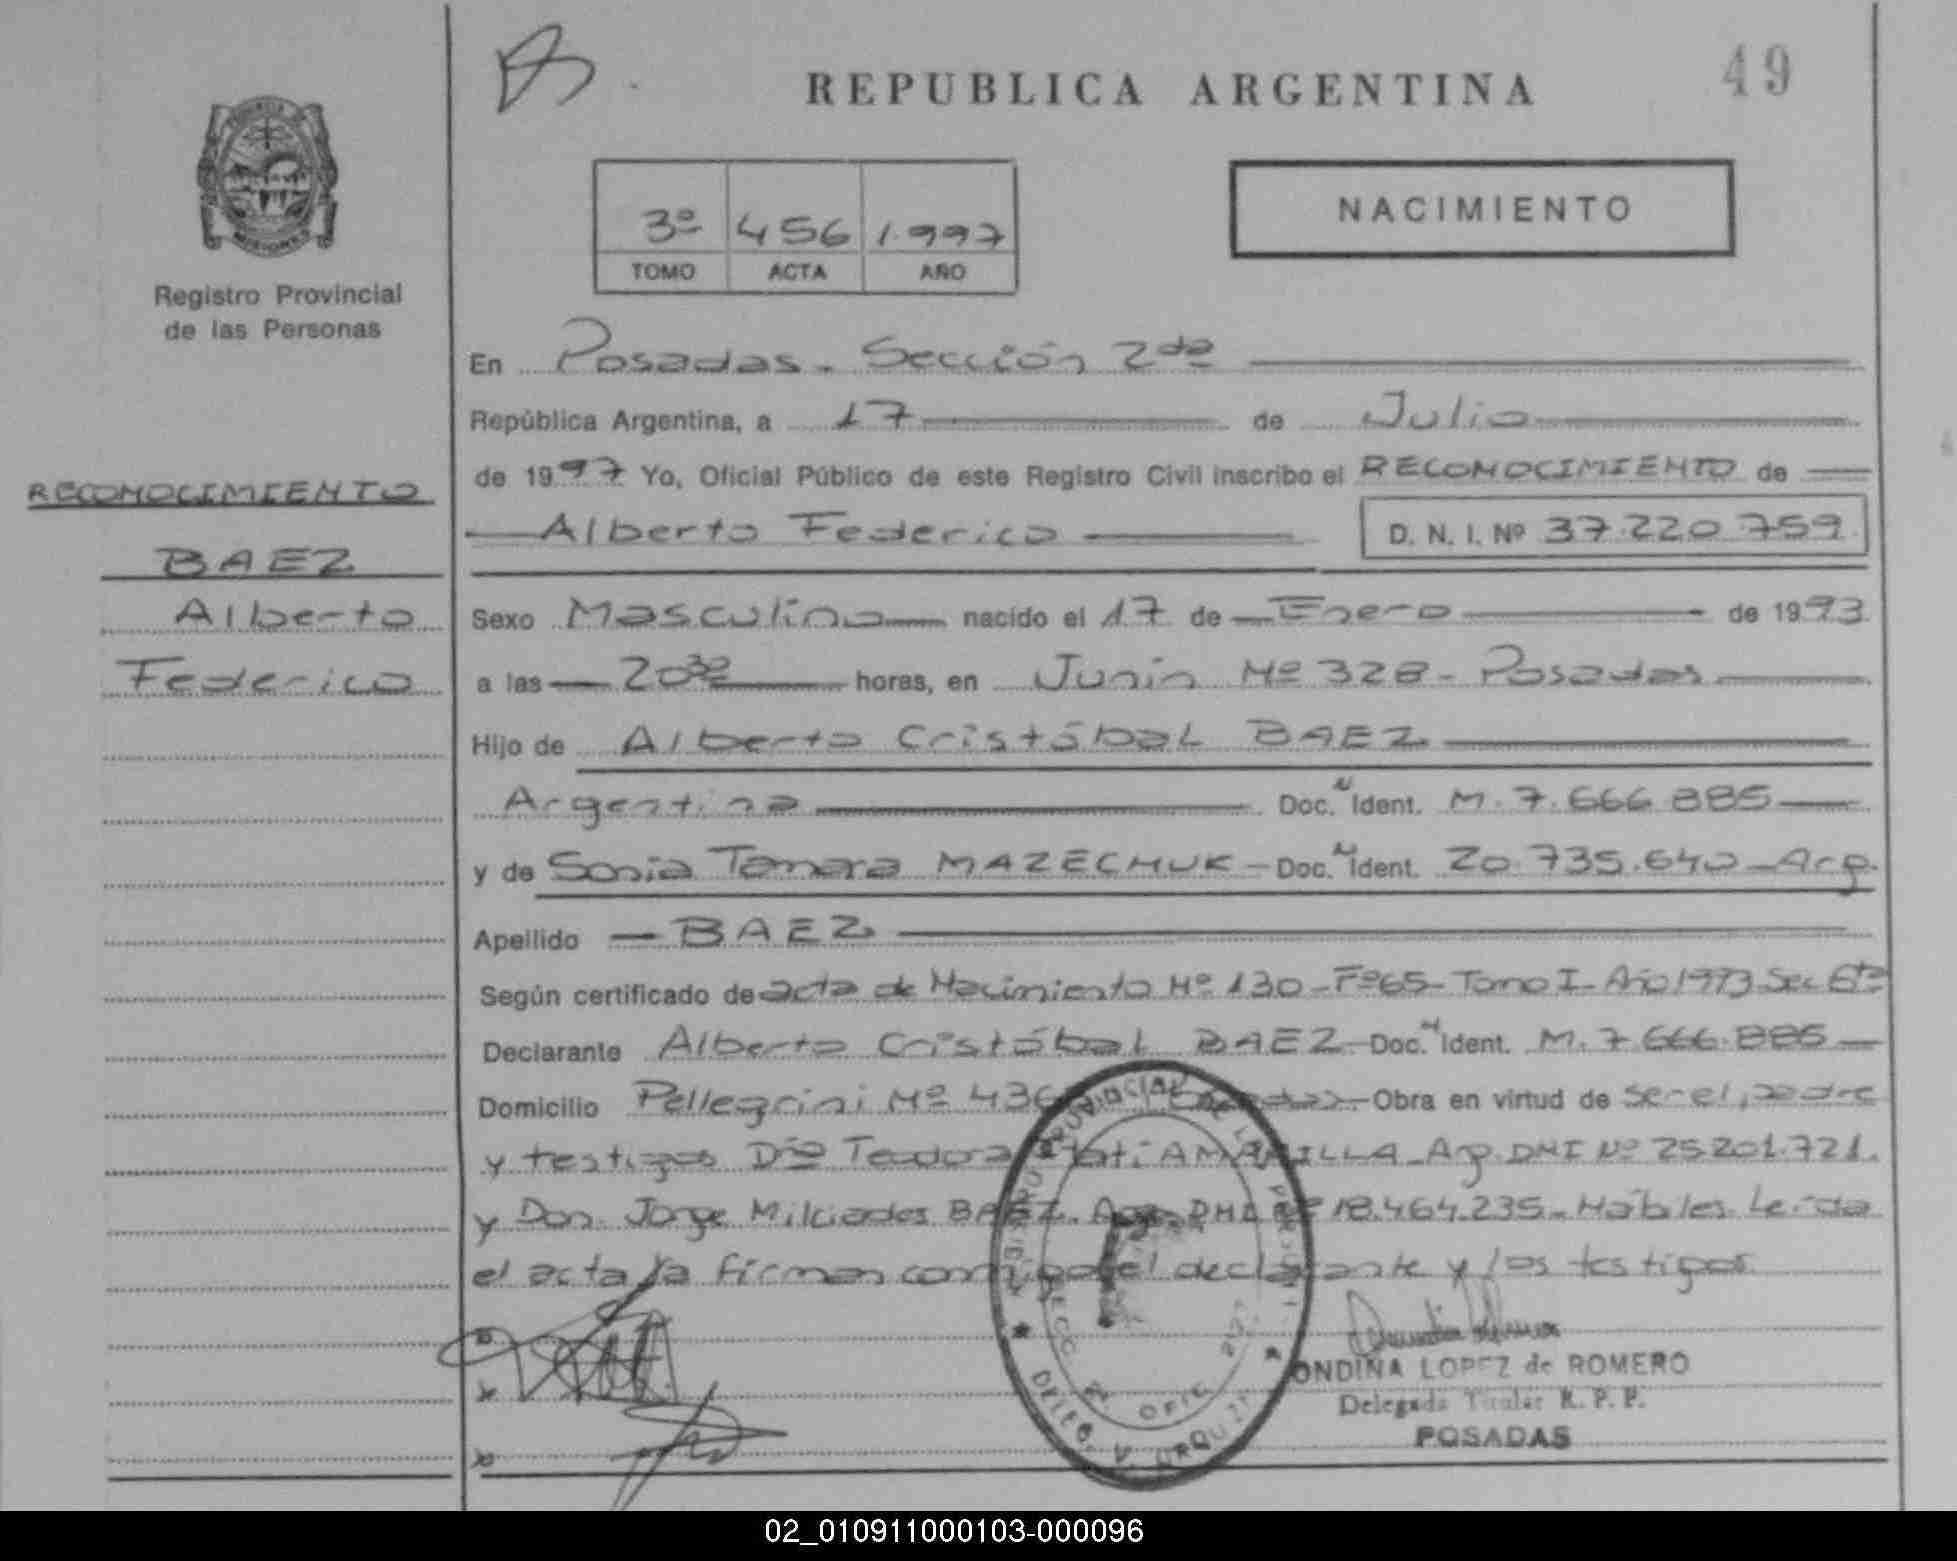 REPUBLICA ARGENTINA
49
3º 456 1.997
TOMO ACTA AÑO
NACIMIENTO
Registro Provincial
de las Personas
RECONOCIMIENTO
BAEZ
Alberto
Federico
En Posadas - Sección 2da
República Argentina, a 17 de Julio
de 1997 Yo, Oficial Público de este Registro Civil inscribo el RECONOCIMIENTO de
Alberto Federico D. N. I. Nº 37.220.759
Sexo Masculino nacido el 17 de Enero de 1993
a las 20³⁰ horas, en Junín Nº 328 - Posadas
Hijo de Alberto Cristóbal BAEZ
Argentina Doc. N Ident. M. 7.666.885
y de Sonia Tamara MAZECHUK - Doc. N Ident. 20.735.640 - Arg.
Apellido BAEZ
Según certificado de acta de Nacimiento Nº 130 - Fº 65 - Tomo I - Año 1993 Sec. 6ta
Declarante Alberto Cristóbal BAEZ Doc. N Ident. M. 7.666.885
Domicilio Pellegrini Nº Posadas - Obra en virtud de ser el padre
y testigos Dña Teodora AMARILLA - Arg. DNI Nº 25.201.721.
y Don Jorge Milciades BAEZ. Arg. DNI Nº 18.464.235 - Hábiles. Leída
el acta la firman conmigo el declarante y los testigos.
ONDINA LOPEZ de ROMERO
Delegada Titular R. P. P.
POSADAS
02_010911000103-000096